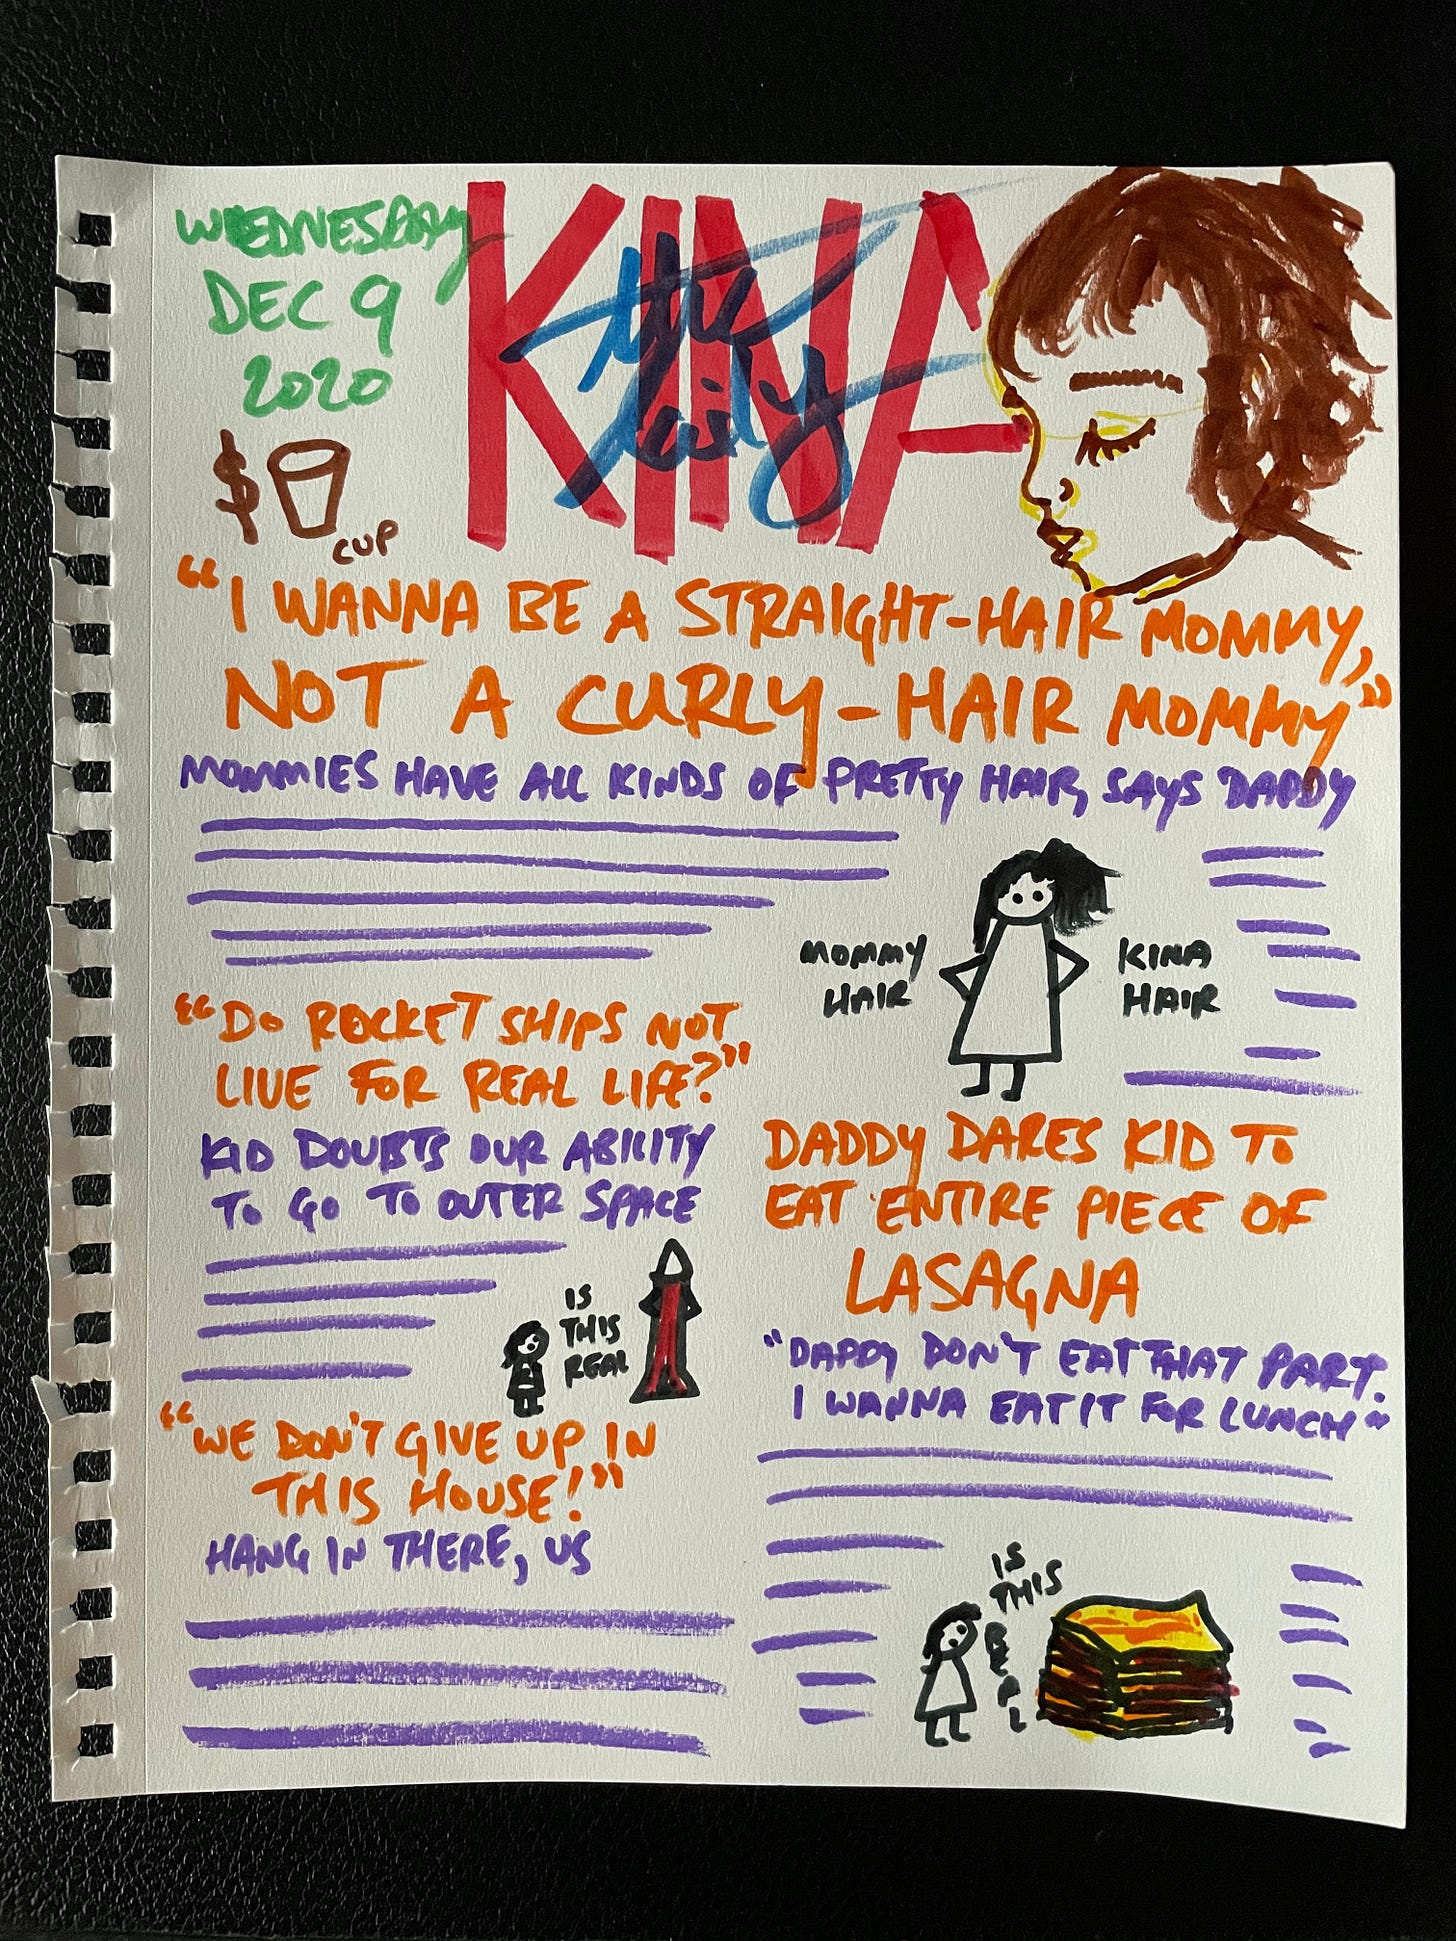 WEDNESDAY
DEC 9
2020
$ CUP
KINA
the
Daily
"I WANNA BE A STRAIGHT-HAIR MOMMY,
NOT A CURLY-HAIR MOMMY"
MOMMIES HAVE ALL KINDS OF PRETTY HAIR, SAYS DADDY
MOMMY
HAIR
KINA
HAIR
"DO ROCKET SHIPS NOT
LIVE FOR REAL LIFE?"
KID DOUBTS OUR ABILITY
TO GO TO OUTER SPACE
IS
THIS
REAL
"WE DON'T GIVE UP IN
THIS HOUSE!"
HANG IN THERE, US
DADDY DARES KID TO
EAT ENTIRE PIECE OF
LASAGNA
"DADDY DON'T EAT THAT PART.
I WANNA EAT IT FOR LUNCH"
IS
THIS
REAL